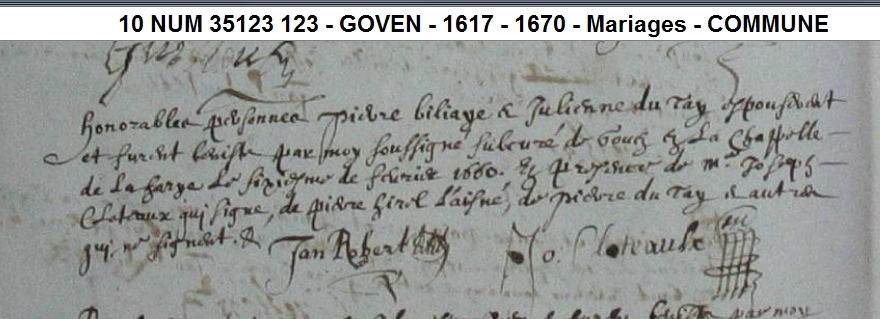 10 NUM 35123 123 - GOVEN - 1617 - 1670 - Mariages - COMMUNE
honorables personnes pierre biliaye & Julienne du Tay espouserent
et furent beniste par moy soussigné subcuré de Goven en La Chappelle
de La harye Le sixiesme de febvrier 1660. En presence de mre Joseph
Cloteaux qui signe, de pierre hirel L'aisné, de pierre du Tay & autres
qui ne signent. &
Jan Robert
Jo. Cloteaulx
par moy